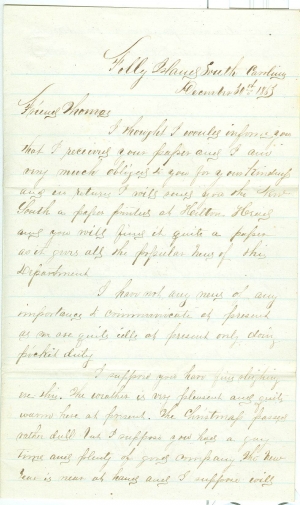 Folly Island South Carolina
December 30th 1863
Friend Thomas
I thought I would inform you
that I received your paper and I am
very much obliged to you for your kindness
and in return I will send you the New
South a paper printed at Hilton Head
and you will find it quite a paper
as it gives all the popular news of this
Department
I have not any news of any
importance to communicate at present
as we are quite idle at present only doing
picket duty
I suppose you have fine sleighing
The weather is very pleasant and quite
warm here at present. The Christmas passed
rather dull but I suppose you had a gay
time and plenty of good company The New
Year is near at hand and I suppose will